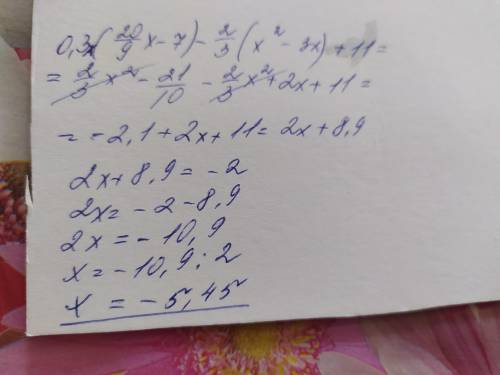 0,3x(20/9 x - 7) - 2/3 (x² - 3x) + 11 =
= 2/3 x² - 21/10 - 2/3 x² + 2x + 11 =
= -2,1 + 2x + 11 = 2x + 8,9
2x + 8,9 = -2
2x = -2 - 8,9
2x = -10,9
x = -10,9 : 2
x = -5,45